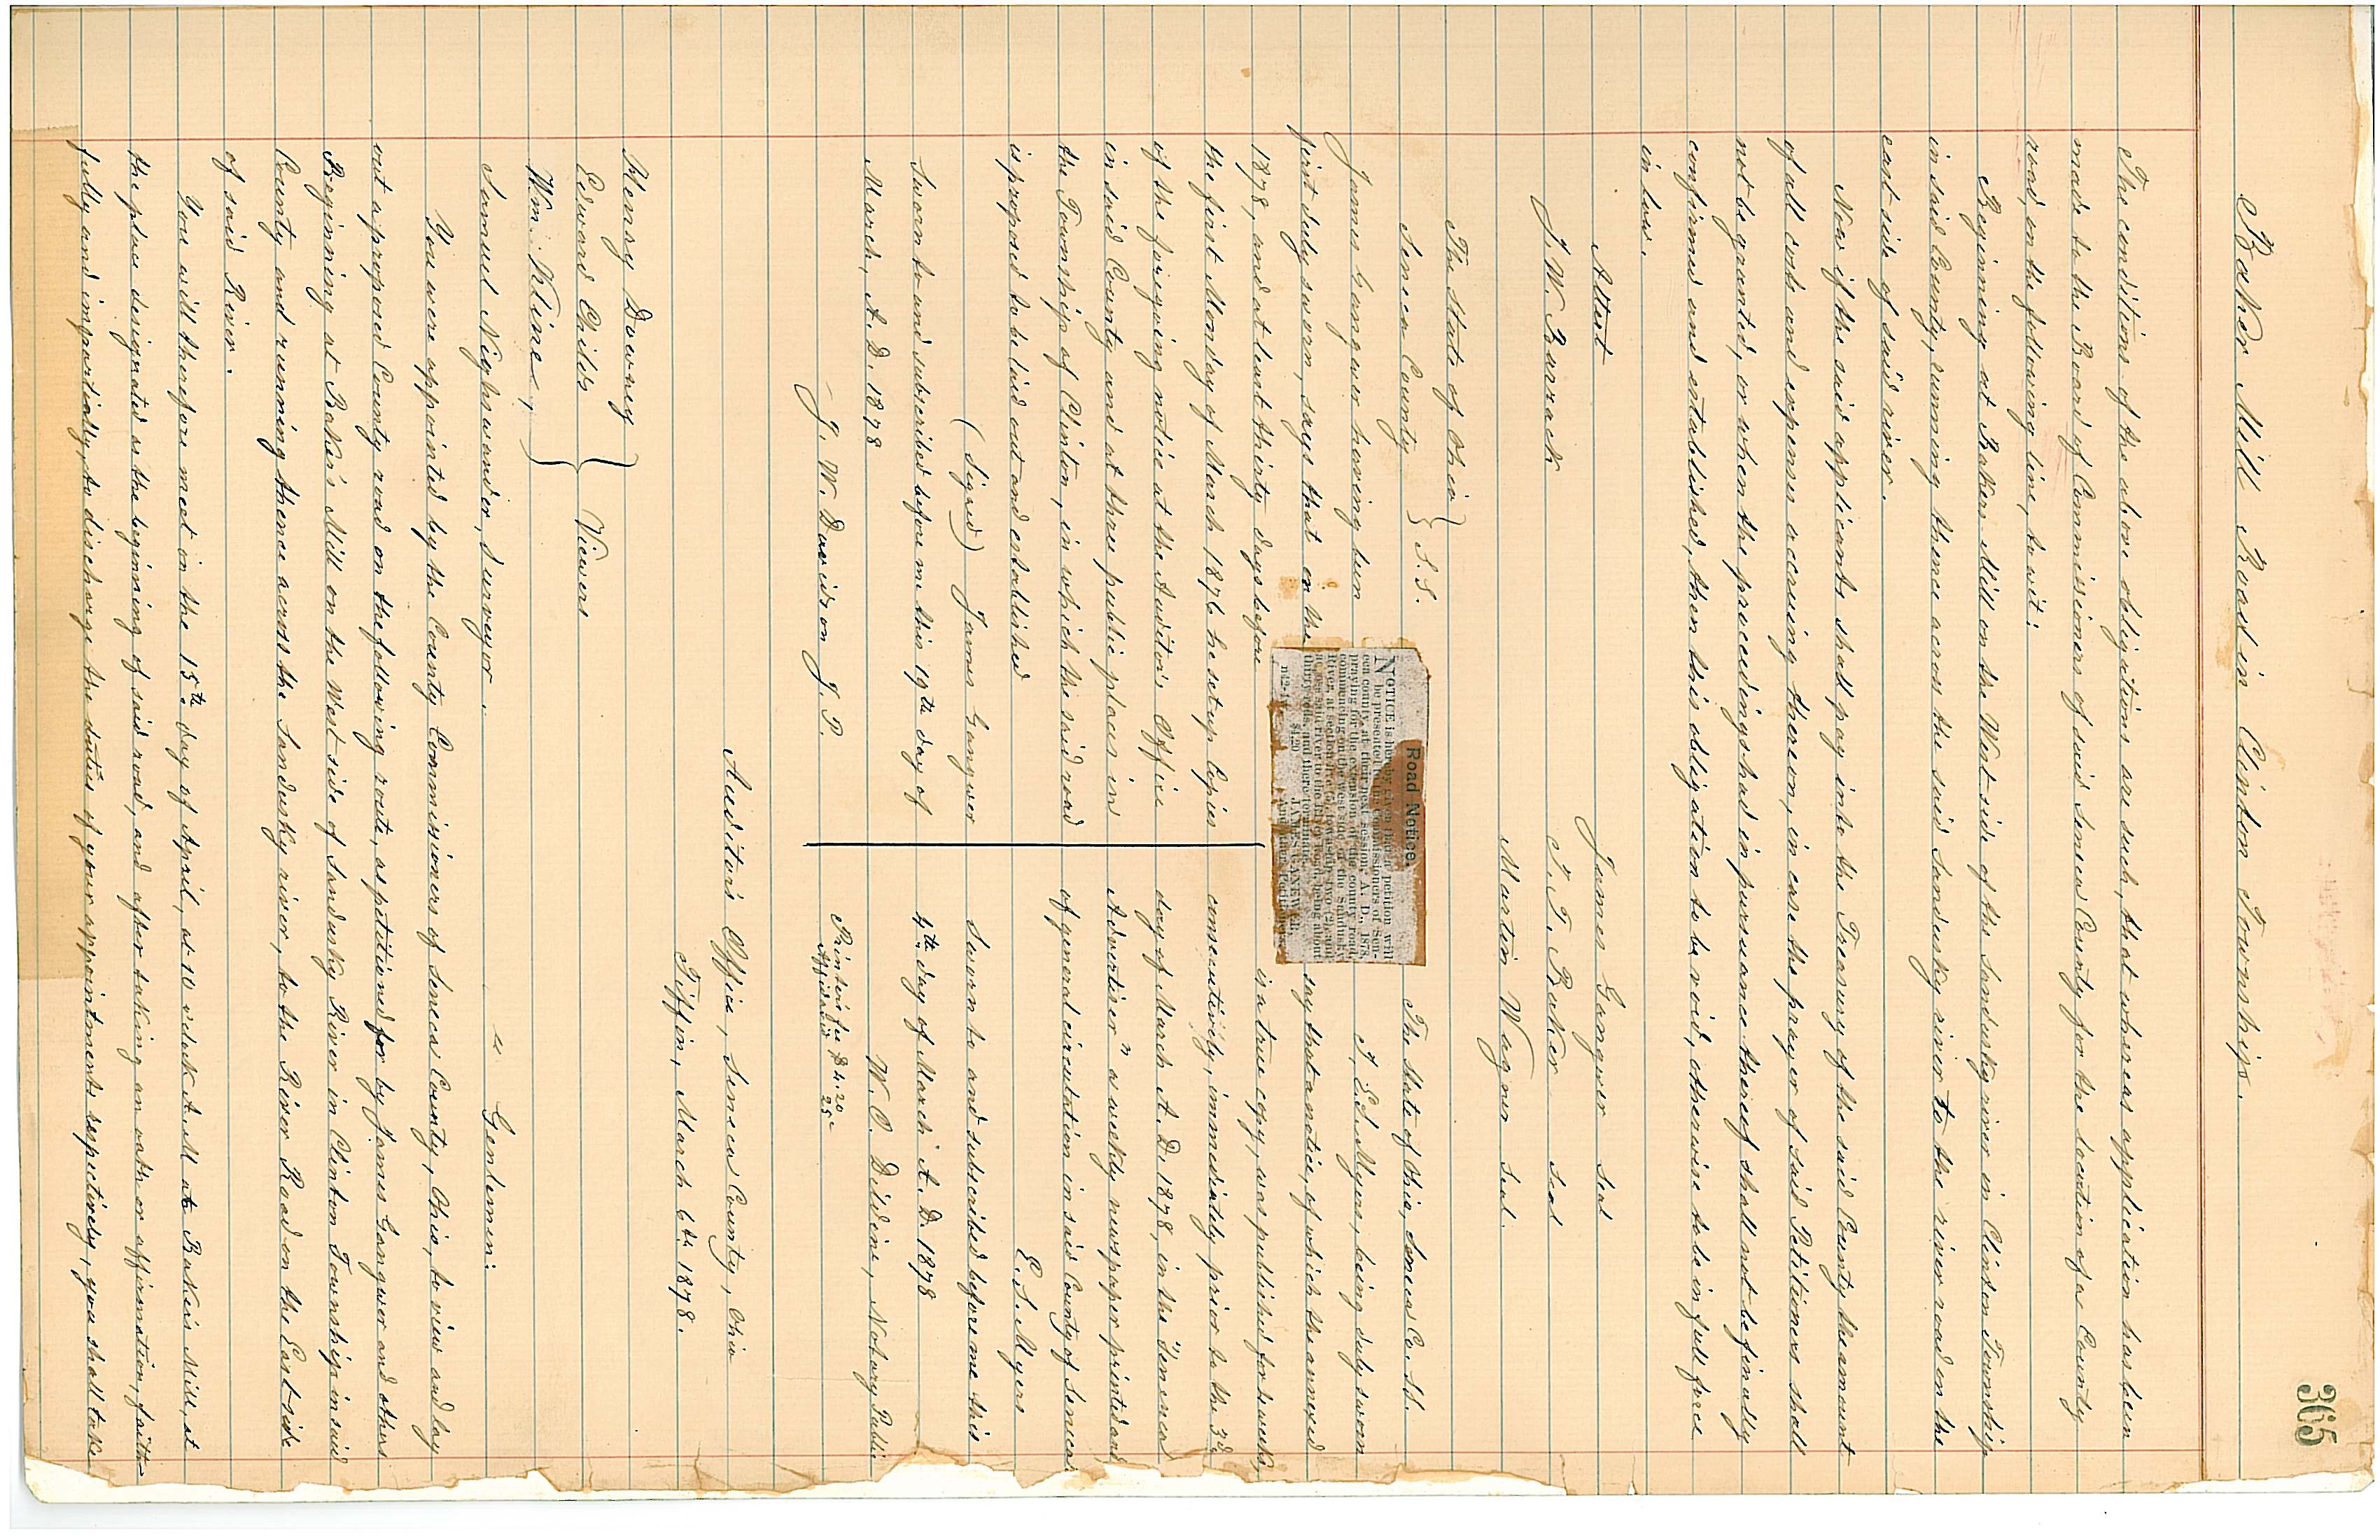 365
Baker Mill Road in Clinton Township.
The conditions of the above obligations are such, that whereas application has been
made to the Board of Commissioners of said Seneca County for the location of a County
road, on the following line, to wit:
Beginning at Bakers Mill on the West side of the Sandusky river in Clinton Township
in said County, running thence across the said Sandusky river to the river road on the
east side of said river.
Now if the said applicants shall pay into the Treasury of the said County the amount
of all costs and expenses accruing thereon, in case the prayer of said Petitioners shall
not be granted, or when the proceedings had in pursuance thereof shall not be finally
confirmed and established, then this obligation to be void, otherwise to be in full force
in law.
Attest
James Gangwer Seal
J. W. Barrack
T. T. Baker Seal
Martin Wagner Seal.
The State of Ohio }
Seneca County } S.S.
James Gangwer having been
first duly sworn, says that on the
1878, and at least thirty days before
the first Monday of March 1876 he set up Copies
of the foregoing notice at the Auditor's Office
in said County and at three public places in
the Township of Clinton, in which the said road
is proposed to be laid out and established
(Signed) James Gangwer
Sworn to and subscribed before me this 19th day of
March, A. D. 1878
J. W. Davidson J. P.
Road Notice.
NOTICE is hereby given that a petition will
be presented to the commissioners of Sen-
eca county, at their next session, A. D., 1878,
praying for the extension of the county road,
commencing on the west side of the Sandusky
River, at section
across said river to the
thirty rods, and there to terminate.
JAMES GANGWER,
$4.20
The State of Ohio, Seneca Co. SS.
I, E.S. Myers, being duly sworn
say that a notice, of which the annexed
is a true copy, was published for 4 weeks,
consecutively, immediately prior to the 3d
day of March A. D. 1878, in the "Seneca
Advertiser" a weekly newspaper printed and
of general circulation in said County of Seneca
E. S. Myers
Sworn to and subscribed before me this
4th day of March A. D. 1878
W. C. Dildine, Notary Public
Printers fee $4.20
Affidavit 25
Auditor's Office, Seneca County, Ohio
Tiffin, March 6th 1878.
Henry Downey }
Edward Childs } Viewers
Wm. Kline, }
Samuel Nighswander, Surveyor.
" Gentlemen:
You were appointed by the County Commissioners of Seneca County, Ohio, to view and lay
out a proposed County road on the following route, as petitioned for by James Gangwer and others
Beginning at Baker's Mill on the West side of Sandusky River in Clinton Township in said
County and running thence across the Sandusky river, to the River Road on the East side
of said River.
You will therefore meet on the 15th day of April, at 10 o'clock A.M. at Baker's Mill, at
the place designated as the beginning of said road, and after taking an oath or affirmation, faith-
fully and impartially, to discharge the duties of your appointments respectively, you shall take